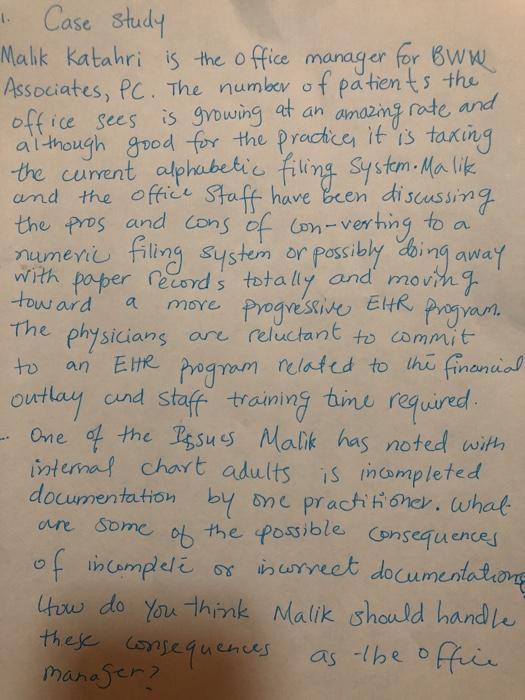 1. Case study
Malik Katahri is the office manager for BWW
Associates, PC. The number of patients the
office sees is growing at an amazing rate and
although good for the practice, it is taxing
the current alphabetic filing system. Malik
and the office staff have been discussing
the pros and cons of con-verting to a
numeric filing system or possibly doing away
with paper records totally and moving
toward a more progressive EHR program.
The physicians are reluctant to commit
to an EHR program related to the financial
outlay and staff training time required.
- One of the Issues Malik has noted with
internal chart adults is incompleted
documentation by one practitioner. What
are some of the possible consequences
of incomplete or incorrect documentations
How do you think Malik should handle
these consequences as the office
manager?